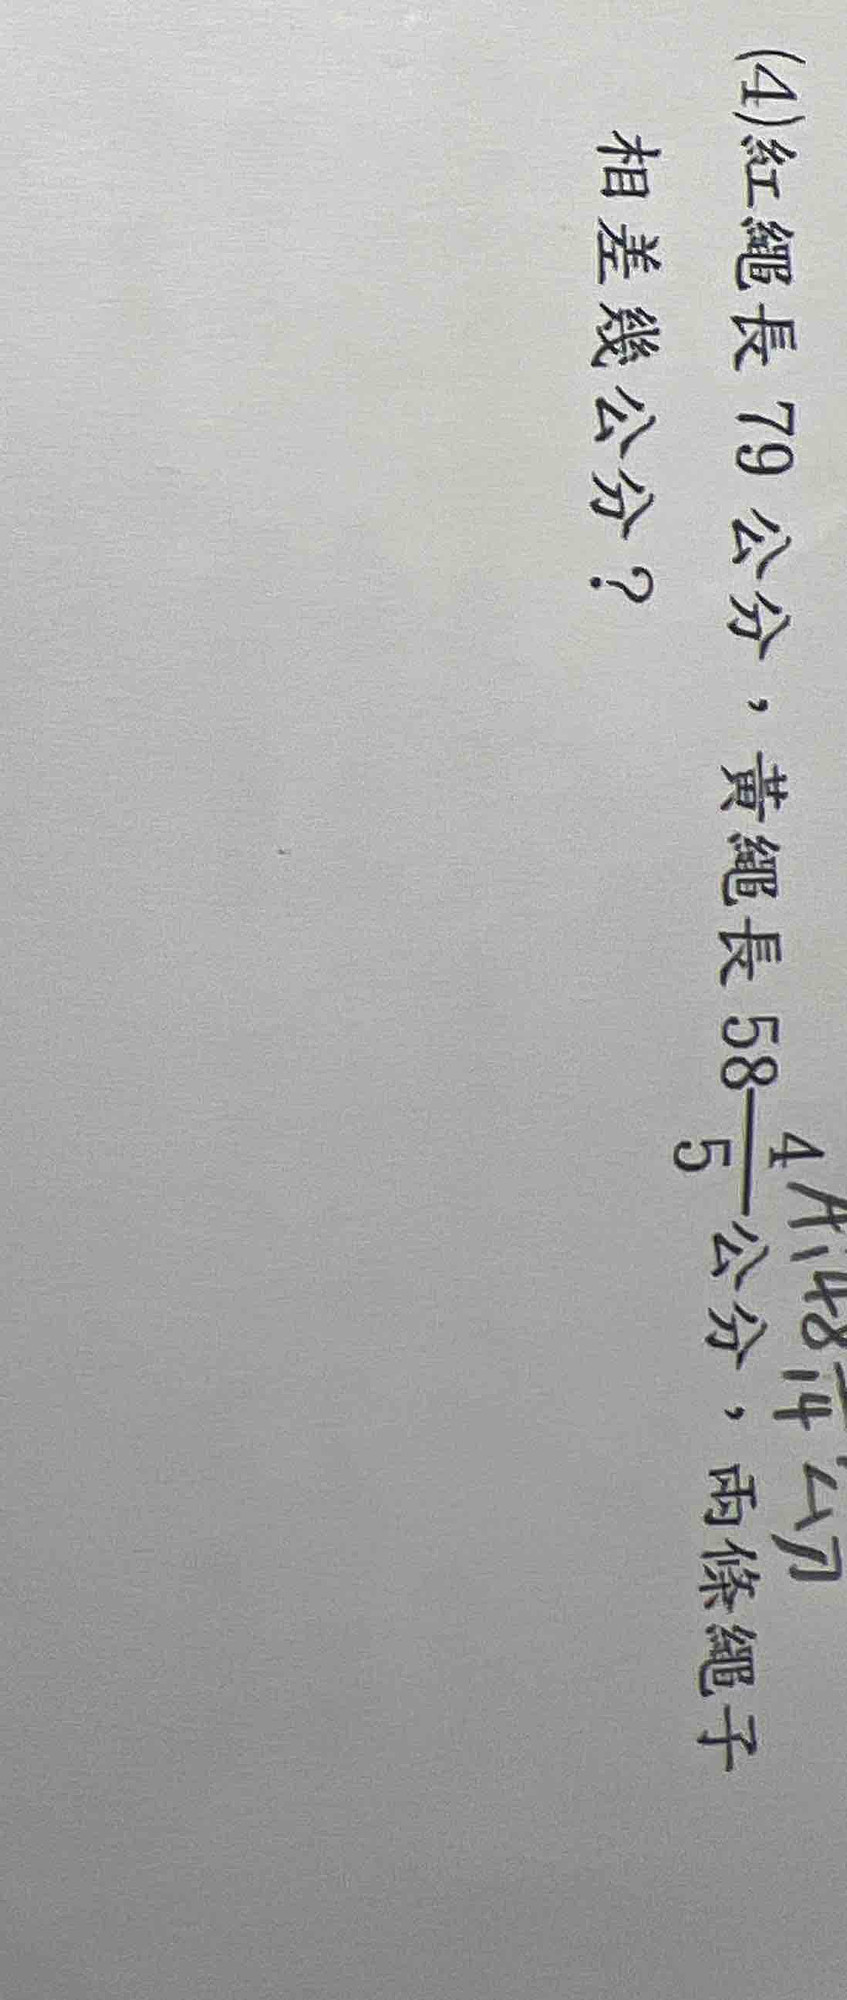 (4)紅繩長 79 公分，黃繩長 58 4/5 公分，兩條繩子
相差幾公分？